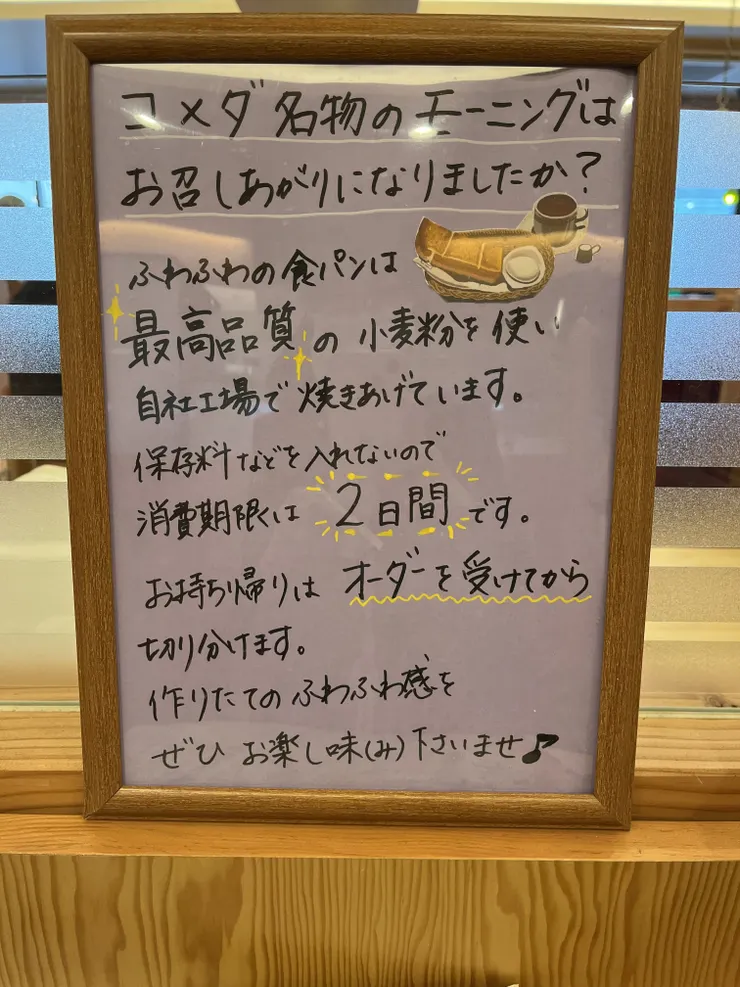 コメダ名物のモーニングは
お召しあがりになりましたか?
ふわふわの食パンは
最高品質の小麦粉を使い
自社工場で焼きあげています。
保存料などを入れないので
消費期限は2日間です。
お持ち帰りはオーダーを受けてから
切り分けます。
作りたてのふわふわ感を
ぜひお楽し味(み)下さいませ♪